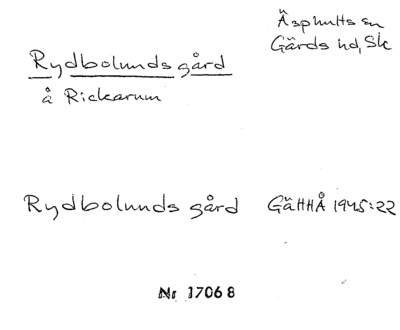 Äsphults sn
Gärds hd, Sk
Rydbolunds gård
å Rickarum
Rydbolunds gård GäHHÅ 1945:22
Nr 17068